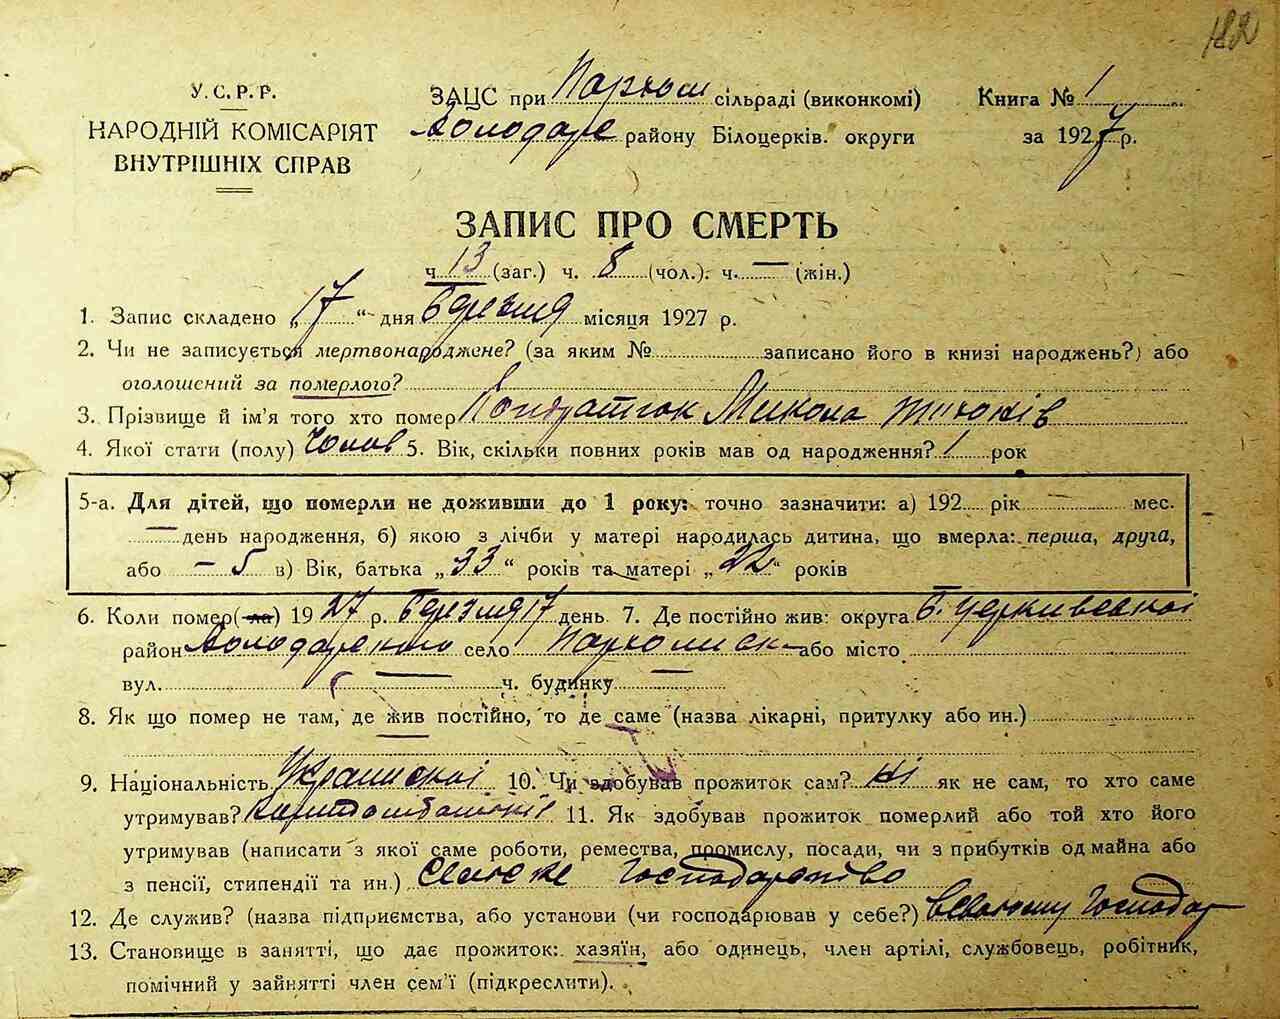 182
У.С.Р.Р.
НАРОДНІЙ КОМІСАРІЯТ
ВНУТРІШНІХ СПРАВ
ЗАЦС при Пархом сільраді (виконкомі)
Володарс району Білоцерків. округи
Книга № 1
за 1927 р.
ЗАПИС ПРО СМЕРТЬ
ч 13 (заг.) ч. 8 (чол.). ч. — (жін.)
1. Запис складено „17“ дня березня місяця 1927 р.
2. Чи не записується мертвонароджене? (за яким № записано його в книзі народжень?) або
оголошений за померлого?
3. Прізвище й ім'я того хто помер Кондратюк Микола
4. Якої стати (полу) Чолов 5. Вік, скільки повних років мав од народження? 1 рок
5-а. Для дітей, що померли не доживши до 1 року: точно зазначити: а) 192 рік — мес.
— день народження, б) якою з лічби у матері народилась дитина, що вмерла: перша, друга,
або – 5 в) Вік, батька „33“ років та матері „22“ років
6. Коли помер(-ла) 1927 р. березня 17 день 7. Де постійно жив: округа Б. Церкивської
район Володарського село або місто
вул. — ч. будинку —
8. Як що помер не там, де жив постійно, то де саме (назва лікарні, притулку або ин.)
9. Національність 10. Чи здобував прожиток сам? Ні як не сам, то хто саме
утримував? 11. Як здобував прожиток померлий або той хто його
утримував (написати з якої саме роботи, ремества, промислу, посади, чи з прибутків од майна або
з пенсії, стипендії та ин.) Сільське Господарство
12. Де служив? (назва підприємства, або установи (чи господарював у себе?) Господар
13. Становище в занятті, що дає прожиток: хазяїн, або одинець, член артілі, службовець, робітник,
помічний у зайнятті член сем'ї (підкреслити).